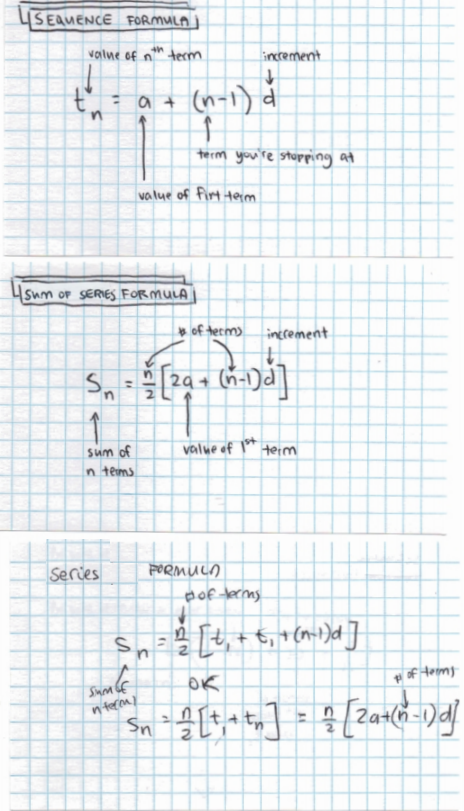 SEQUENCE FORMULA
value of nth term increment
tn = a + (n-1) d
term you're stopping at
value of firt term
SUM OF SERIES FORMULA
# of terms increment
Sn = n/2 [2a + (n-1)d]
sum of value of 1st term
n terms
Series FORMULA
# of terms
Sn = n/2 [t1 + t1 + (n-1)d]
sum of OR # of terms
n terms
Sn = n/2 [t1 + tn] = n/2 [2a+(n-1)d]